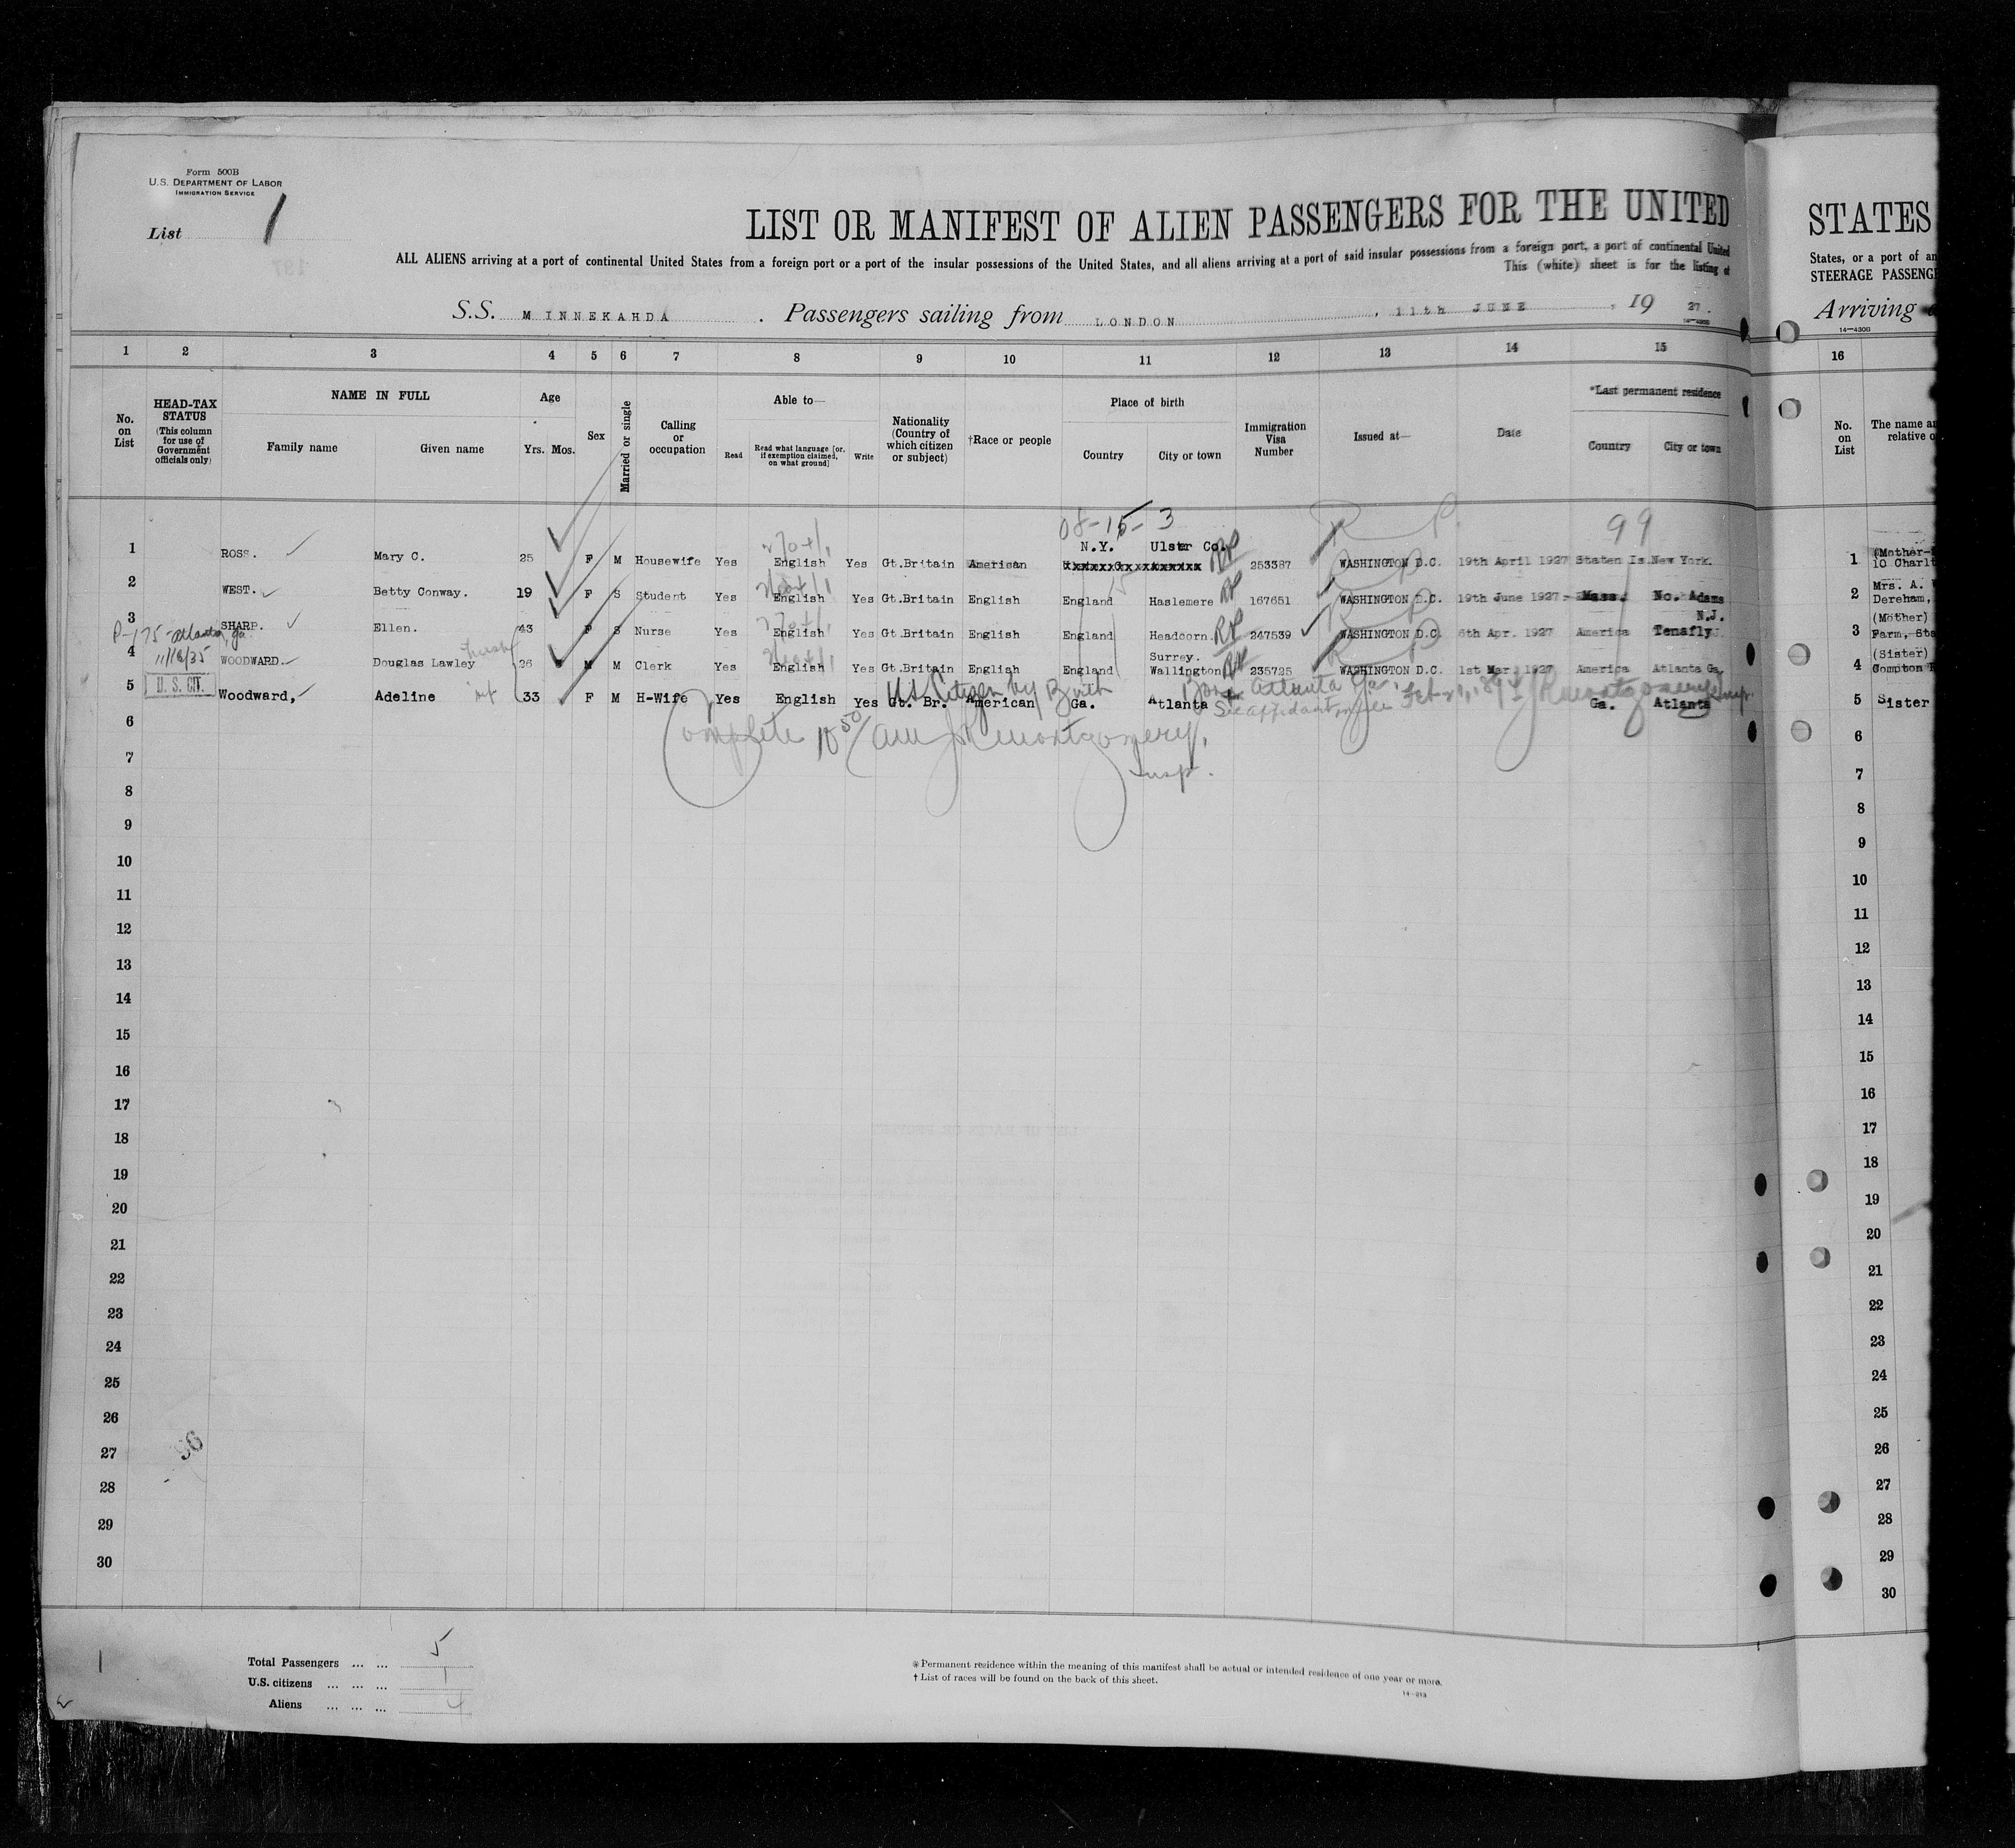 Form 500B
U.S. DEPARTMENT OF LABOR
IMMIGRATION SERVICE
List 1
LIST OR MANIFEST OF ALIEN PASSENGERS FOR THE UNITED
ALL ALIENS arriving at a port of continental United States from a foreign port or a port of the insular possessions of the United States, and all aliens arriving at a port of said insular possessions from a foreign port, a port of continental United
This (white) sheet is for the listing of
S.S. MINNEKAHDA. Passengers sailing from LONDON, 11th JUNE, 19 27.
14-430B
1 2 3 4 5 6 7 8 9 10 11 12 13 14 15
No. on List
HEAD-TAX STATUS (This column for use of Government officials only)
NAME IN FULL
Family name Given name
Age
Yrs. Mos.
Sex
Married or single
Calling or occupation
Able to—
Read Read what language [or, if exemption claimed, on what ground] Write
Nationality (Country of which citizen or subject)
†Race or people
Place of birth
Country City or town
Immigration Visa Number
Issued at—
Date
*Last permanent residence
Country City or town
08-15-3 R P. 99
N.Y. Ulster Co. RP
1 ROSS. Mary C. 25 F M Housewife Yes English Yes Gt.Britain American 253387 WASHINGTON D.C. 19th April 1927 Staten Is. New York.
2 WEST. Betty Conway. 19 F S Student Yes English Yes Gt.Britain English England Haslemere RP 167651 WASHINGTON D.C. 19th June 1927 Mass. No. Adams
N.J.
3 SHARP. Ellen. 43 F S Nurse Yes English Yes Gt.Britain English England Headcorn. RP 247539 WASHINGTON D.C. 6th Apr. 1927 America Tenafly
P-175-Atlanta, Ga.
11/18/35
Surrey.
4 WOODWARD. Douglas Lawley husb 26 M M Clerk Yes English Yes Gt.Britain English England Wallington RP 235725 WASHINGTON D.C. 1st Mar. 1927 America Atlanta Ga.
U.S. Citizen by Birth Born Atlanta Ga.
5 U. S. CIT. Woodward, Adeline wf 33 F M H-Wife Yes English Yes Gt. Br. American Ga. Atlanta See affidavit Ga. Atlanta
6 Complete 10 50/ AM Montgomery,
Insp.
7
8
9
10
11
12
13
14
15
16
17
18
19
20
21
22
23
24
25
26
27 96
28
29
30
Total Passengers ... ... 5
U.S. citizens ... ... ... 1
Aliens ... ... ... 4
* Permanent residence within the meaning of this manifest shall be actual or intended residence of one year or more.
† List of races will be found on the back of this sheet.
STATES
States, or a port of an
STEERAGE PASSENGE
Arriving
14-430B
16
No. on List
The name an
relative o
1 (Mother-
10 Charlt
2 Mrs. A.
Dereham,
(Mother)
3 Farm, Sta
(Sister)
4 Compton
5 Sister
6
7
8
9
10
11
12
13
14
15
16
17
18
19
20
21
22
23
24
25
26
27
28
29
30